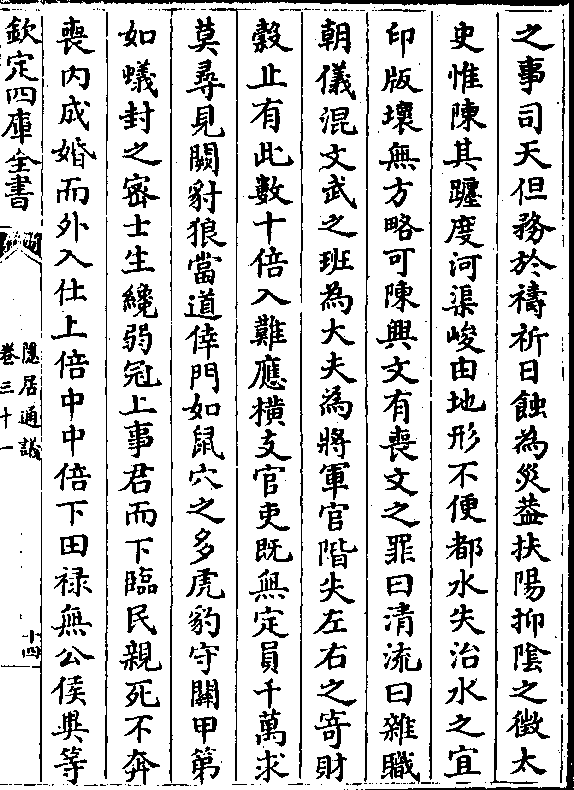 之事司天但務於禱祈日蝕為災葢扶陽抑陰之徵太
史惟陳其躔度河渠峻由地形不便都水失治水之宜
印版壞無方略可陳興文有喪文之罪曰清流曰雜職
朝儀混文武之班為大夫為將軍官階失左右之寄財
穀止有此數十倍入難應橫支官吏既無定員千萬求
莫尋見闕豺狼當道倖門如鼠穴之多虎豹守關甲第
如蟻封之密士生纔弱冠上事君而下臨民親死不奔
喪内成婚而外入仕上倍中中倍下田禄無公侯與等
欽定四庫全書
隱居通議
卷三十一
十四